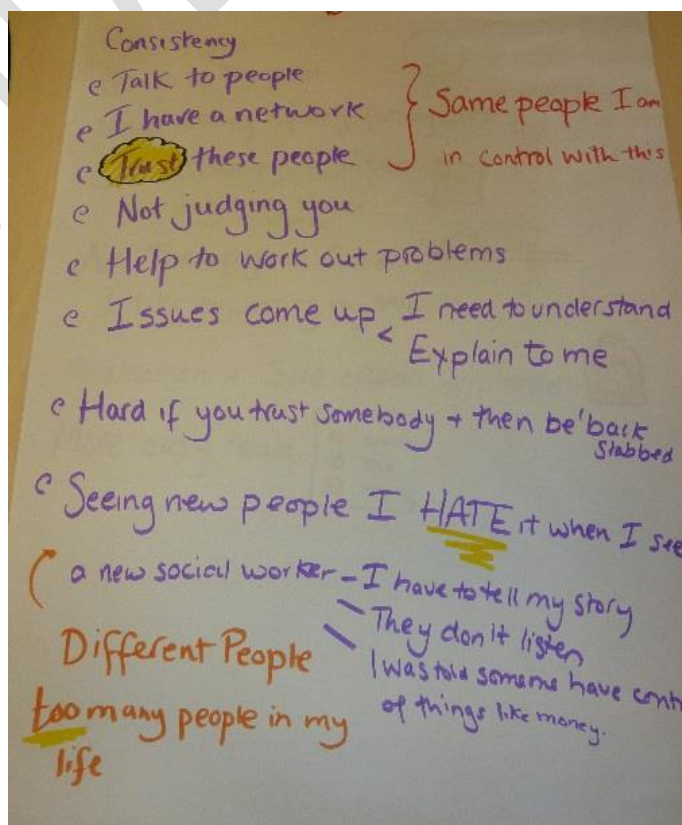 Consistency
Talk to people
I have a network
Trust these people
Same people I am
in control with this
Not judging you
Help to work out problems
Issues come up < I need to understand
Explain to me
Hard if you trust somebody + then be 'back
stabbed
Seeing new people I HATE it when I see
a new social worker - I have to tell my story
They don't listen
I was told have
of things like money.
Different People
too many people in my
life